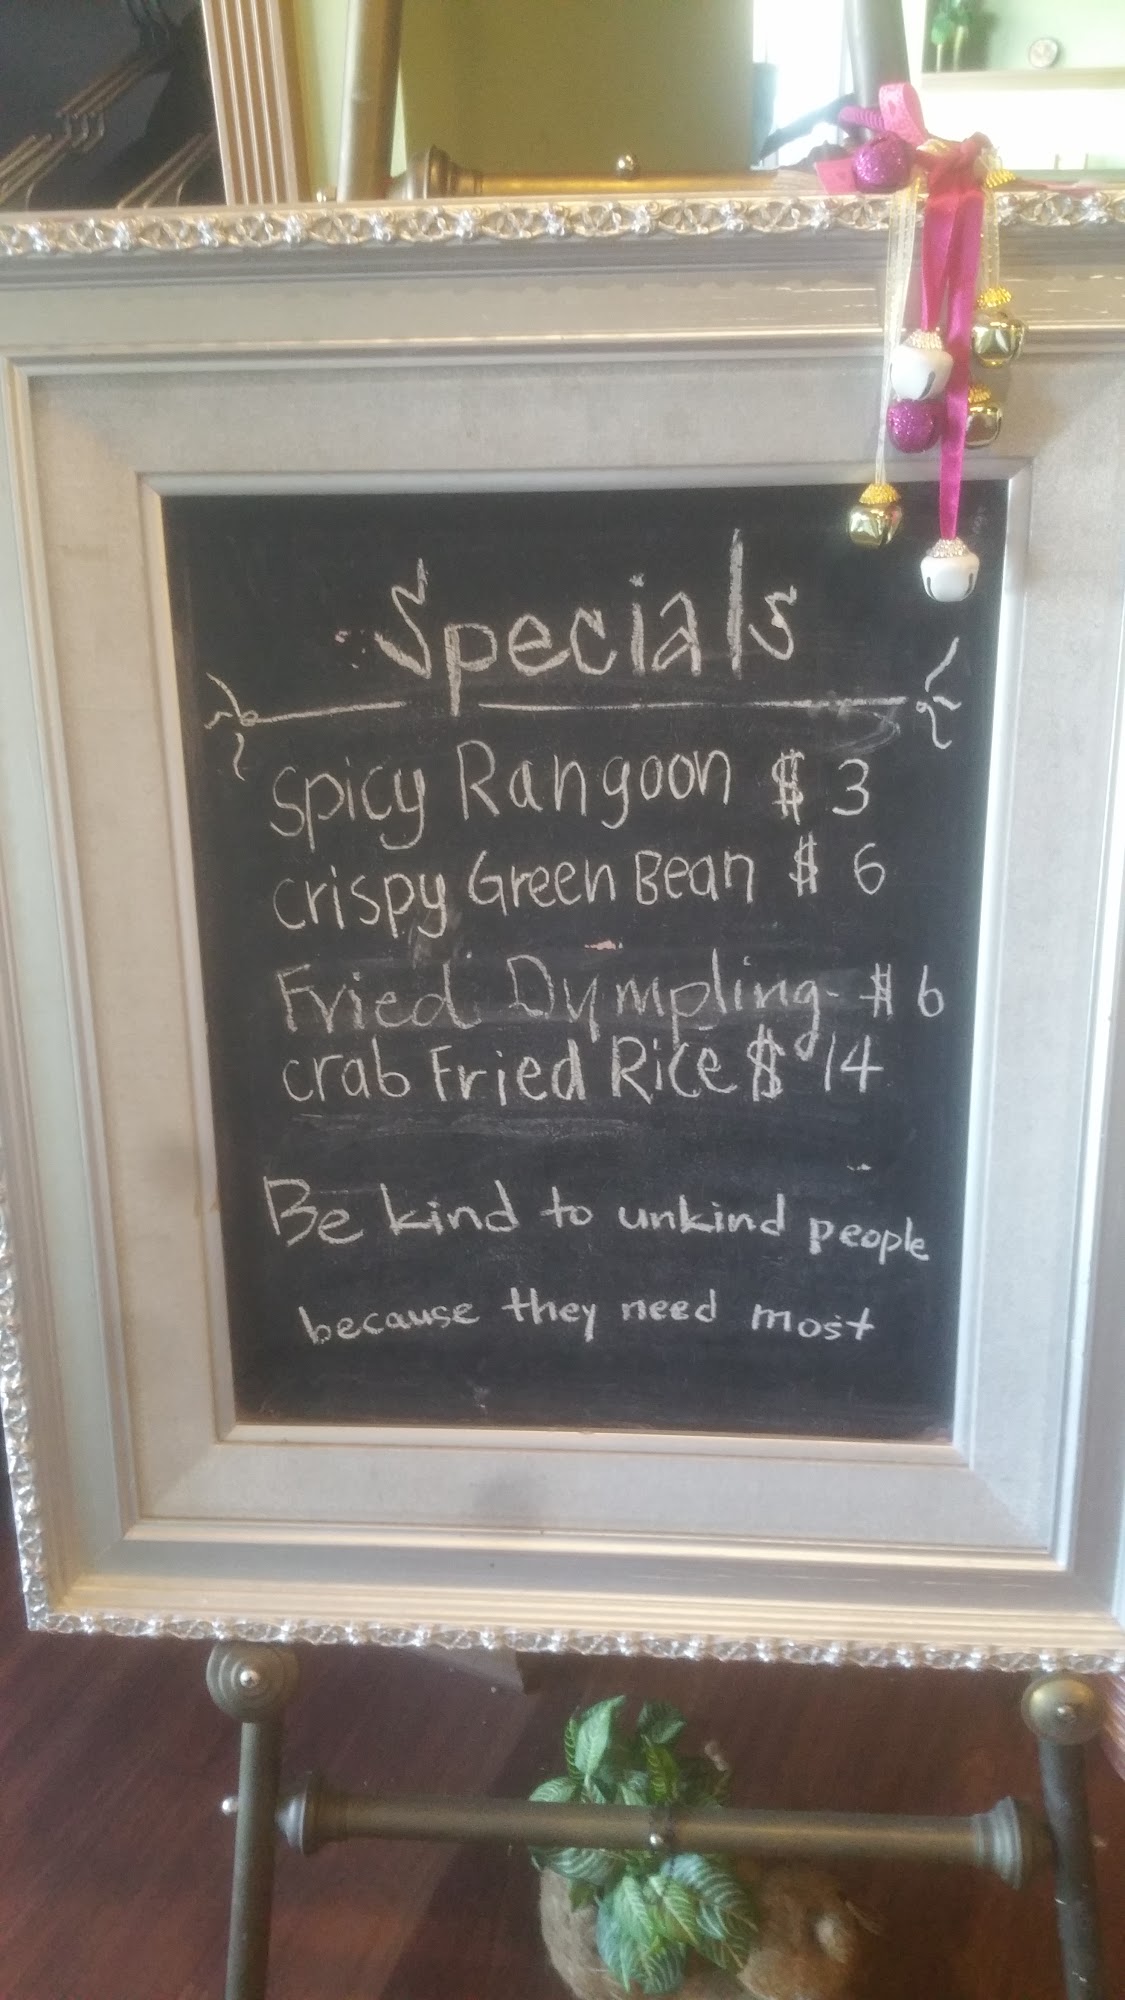 Specials
Spicy Rangoon $ 3
crispy Green Bean $ 6
Fried Dympling $ 6
crab Fried Rice $ 14
Be kind to unkind people
because they need most